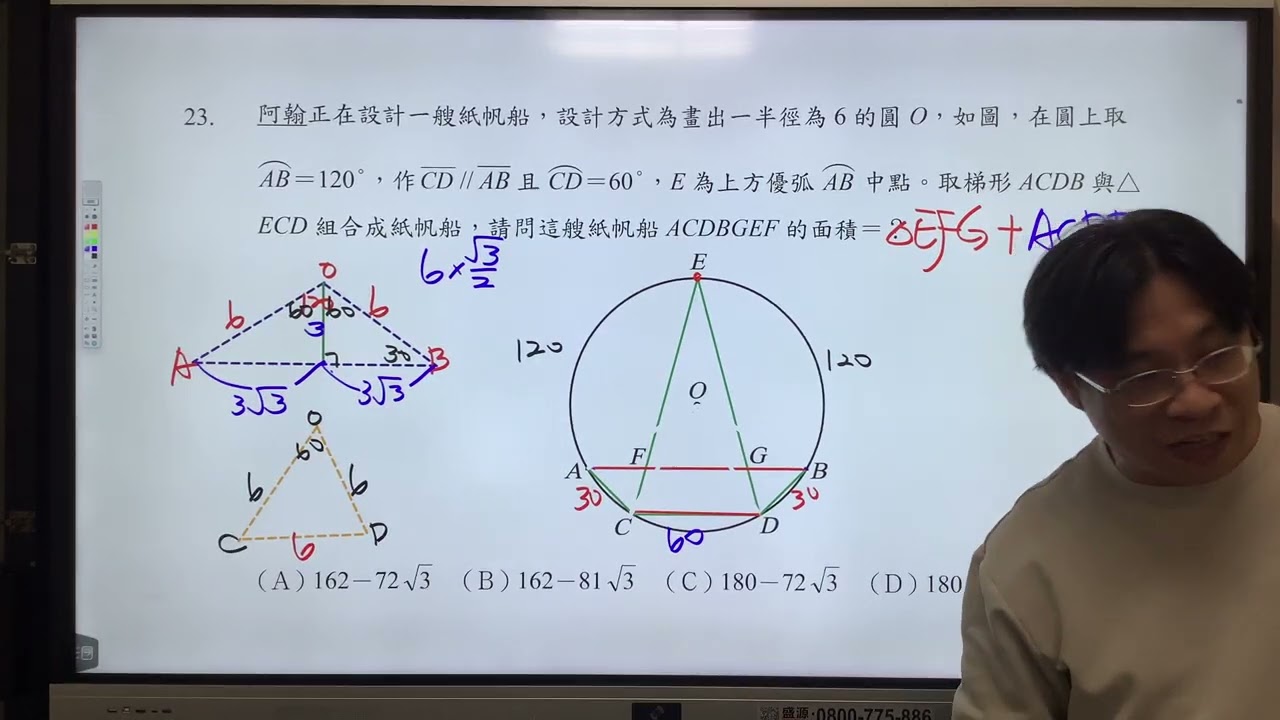 23. 阿翰正在設計一艘紙帆船,設計方式為畫出一半徑為 6 的圓 O,如圖,在圓上取
AB=120°,作 CD // AB 且 CD=60°,E 為上方優弧 AB 中點。取梯形 ACDB 與△
ECD 組合成紙帆船,請問這艘紙帆船 ACDBGEF 的面積=?
△EFG+
6×√3/2
O
6
6
60
60
3
30
A
B
3√3
3√3
O
60
6
6
C
D
6
E
120
120
O
F
G
A
B
30
30
C
D
60
(A) 162-72√3 (B) 162-81√3 (C) 180-72√3 (D) 180
盛源:0800-775-886